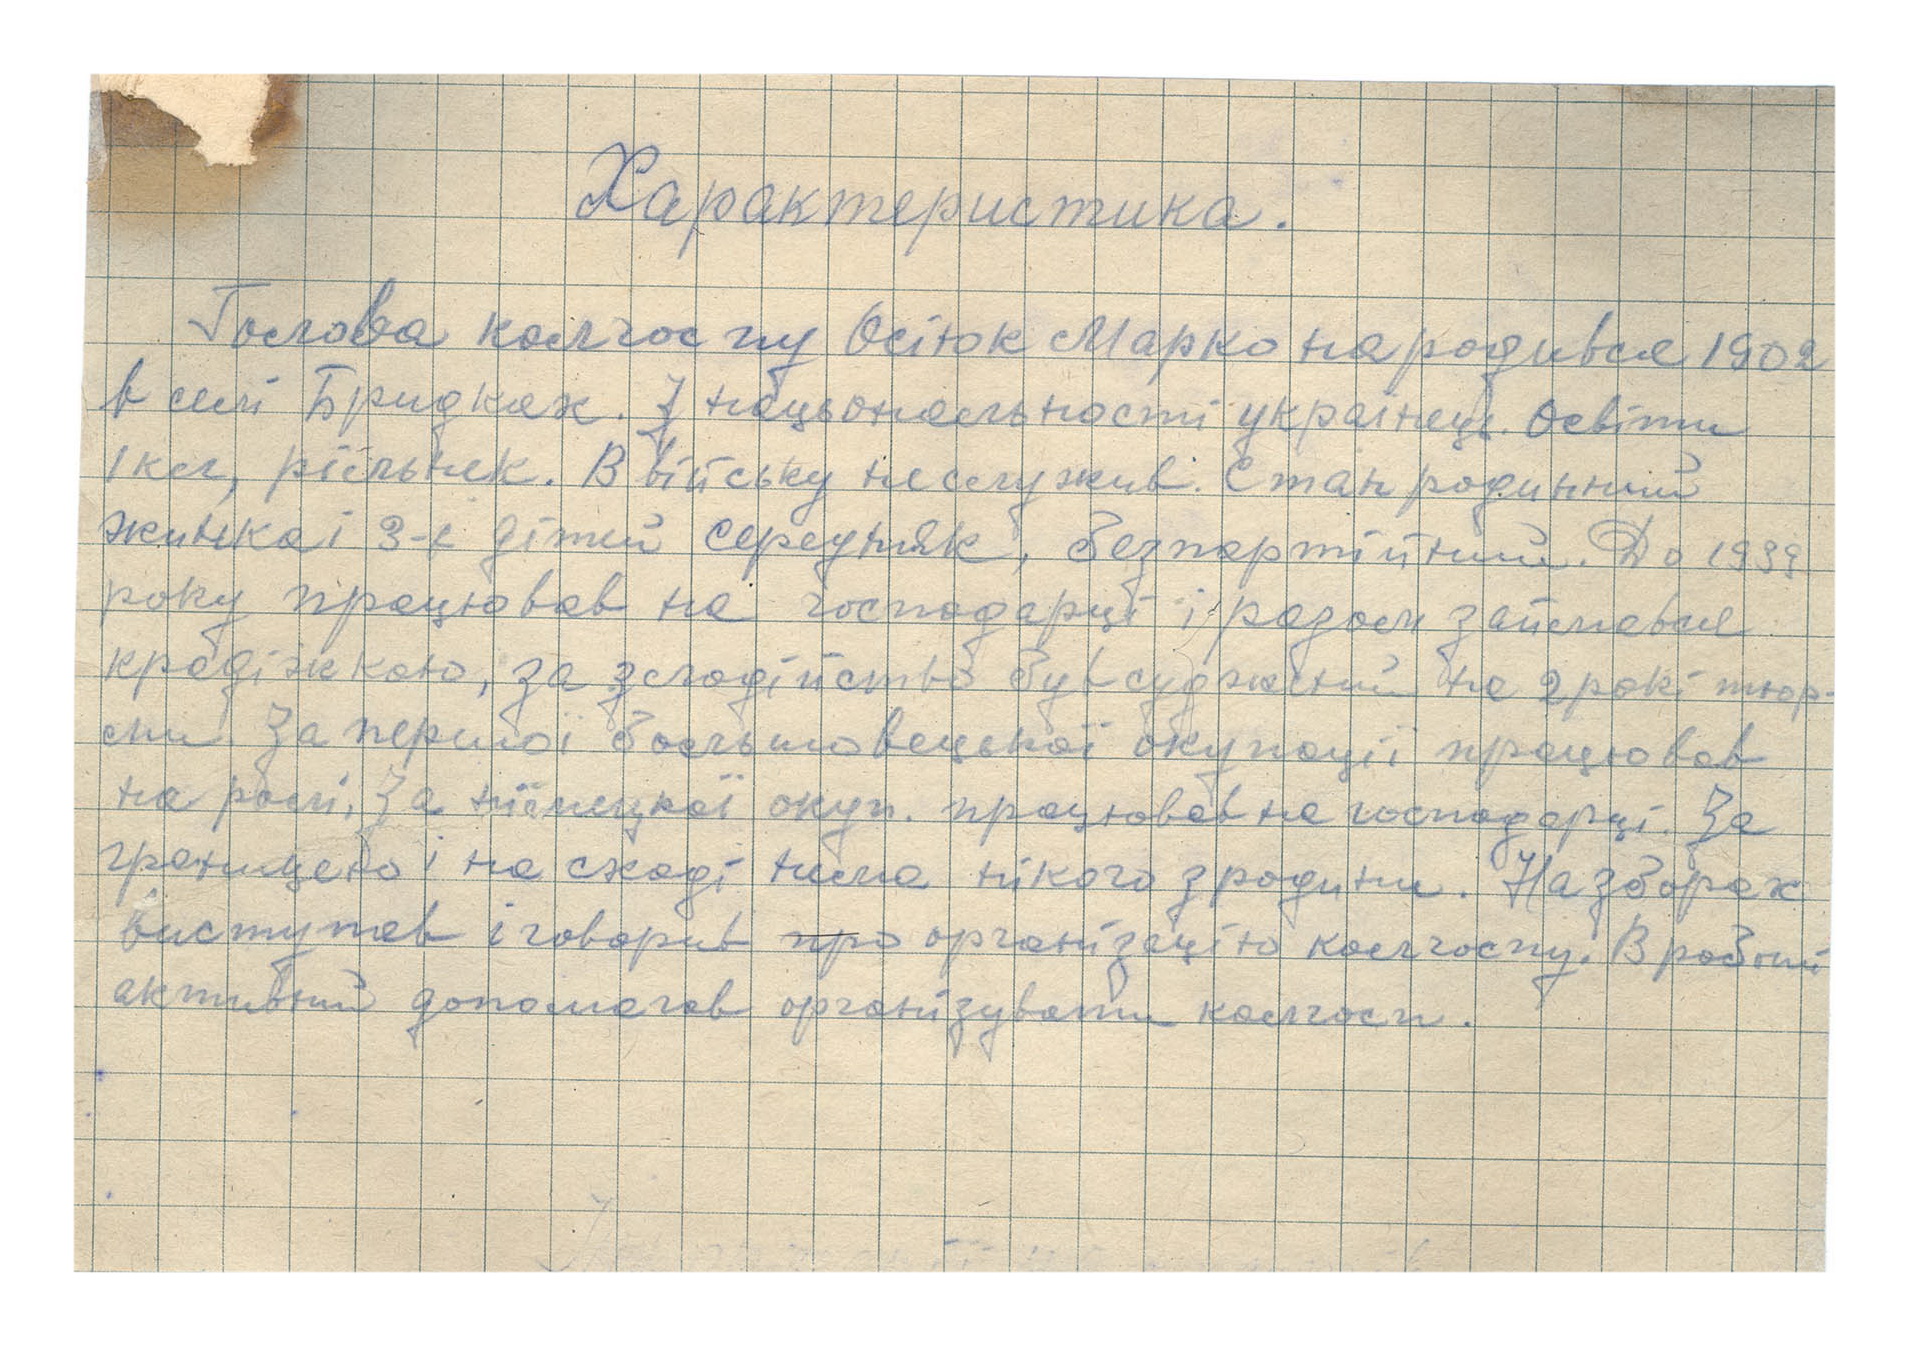 Характеристика.
Голова колгоспу Осіюк Марко народився 1902
в селі Бридках. З національності українець. Освіти
1 кл, рільнек. В війську неслужив. Стан родинний
жинка і 3-є дітей середняк, безпартійний. До 1939
року працював на господарці і разом займався
крадіжкою, за злодійство був суджений на 2 рокі тюр-
ми. За першої большовецької окупації працював
на ролі. За німецкої окуп. працював на господарці. За
границею і на сході нема нікого з родини. На зборах
виступав і говорив про організацію колгоспу. В роботі
активний допомагав організувати колгосп.